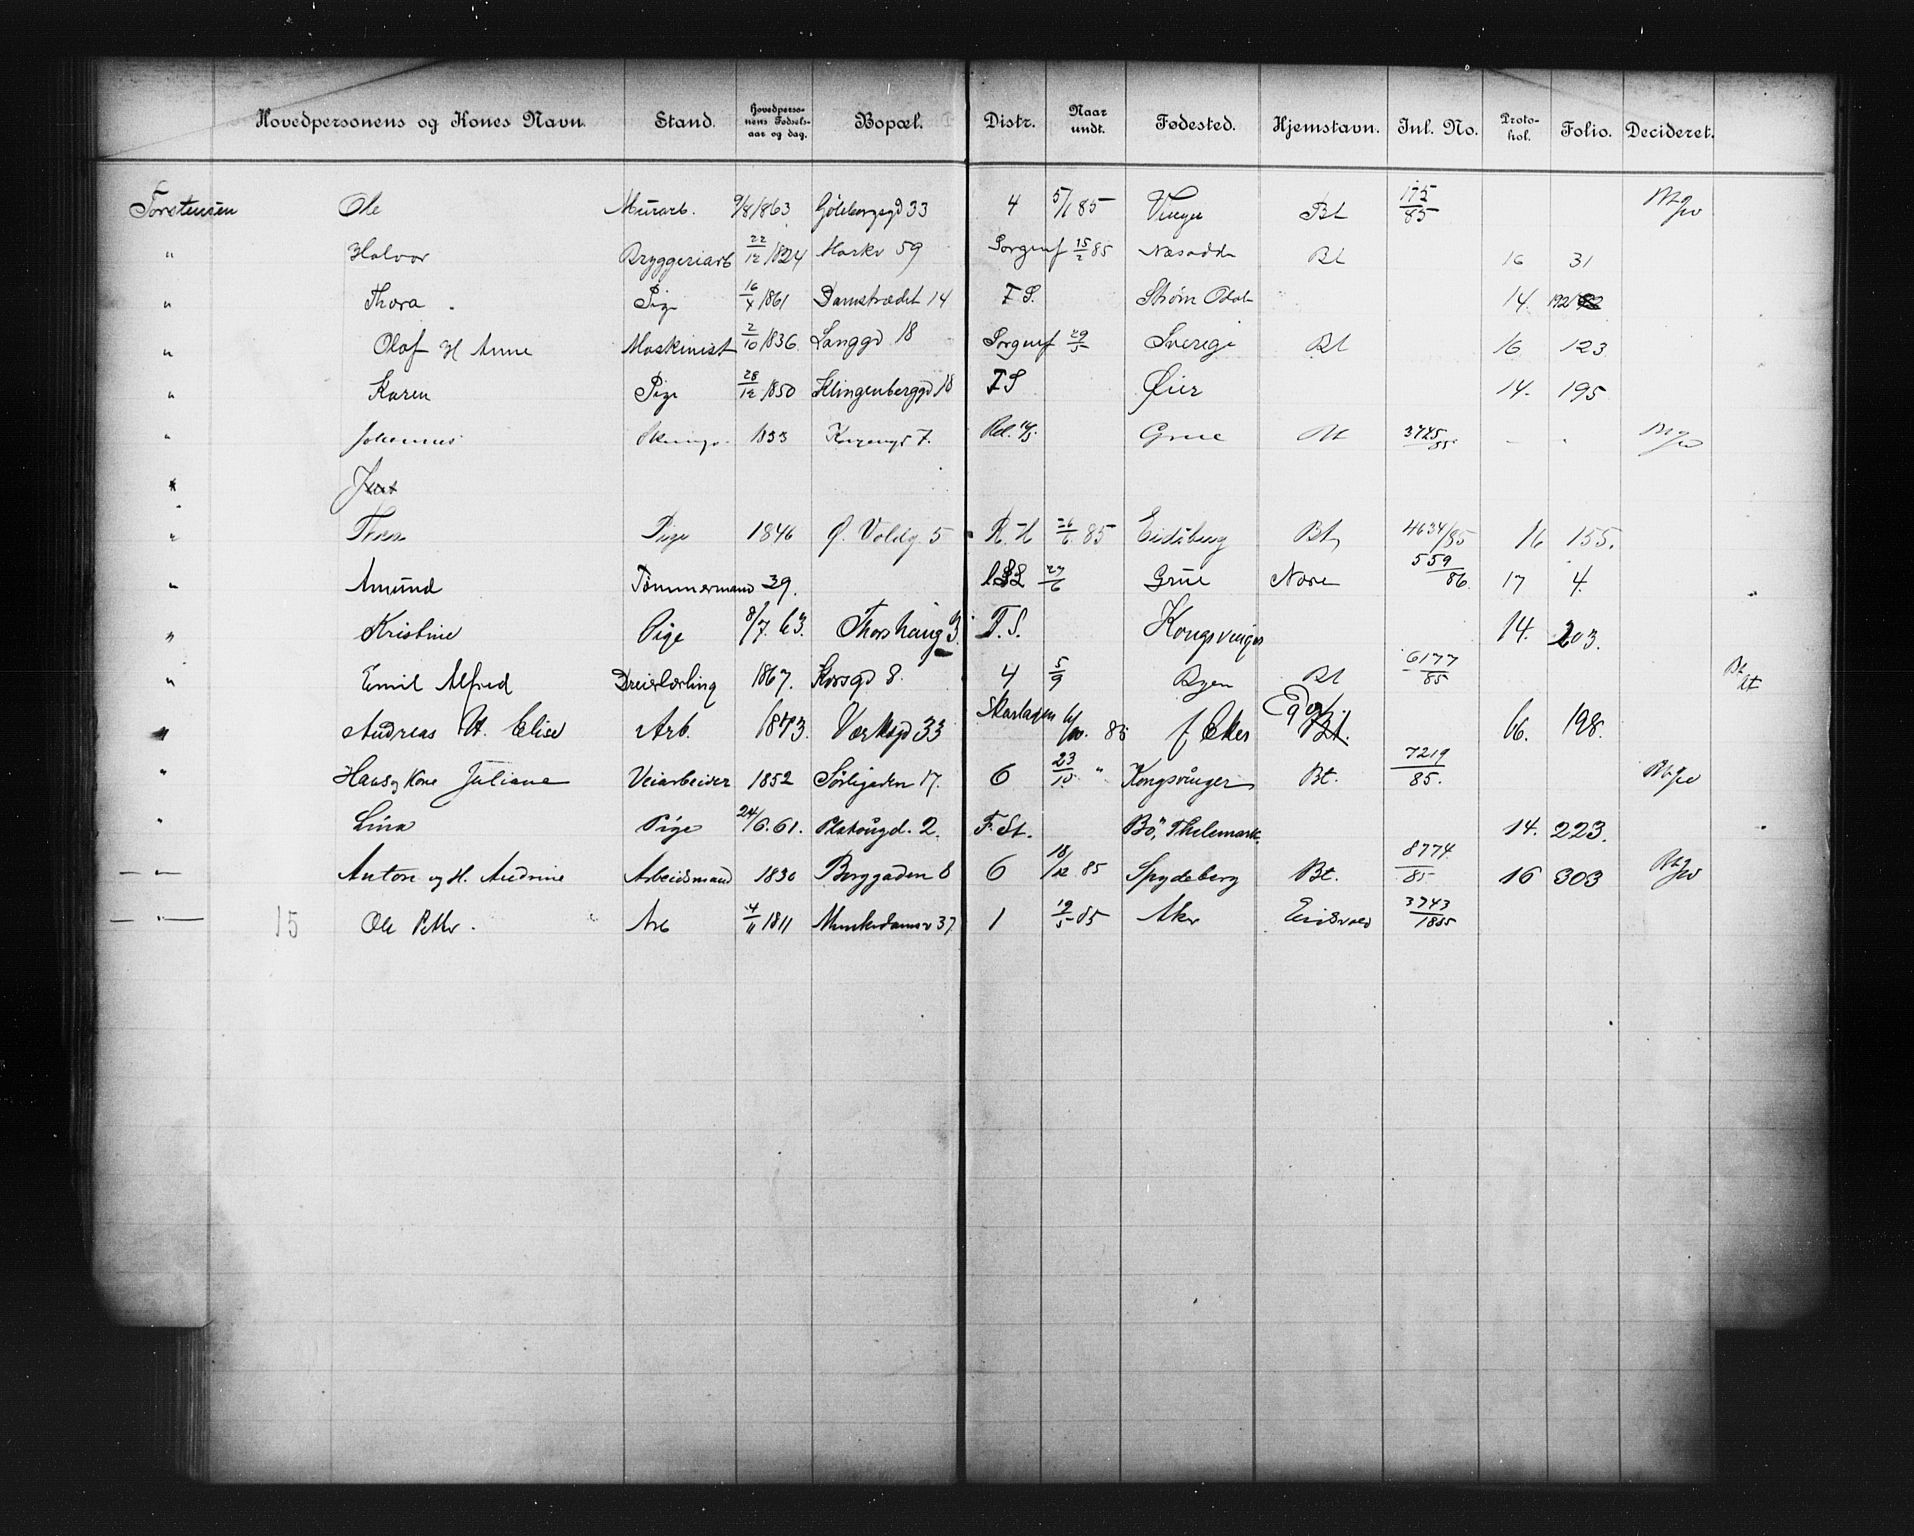 Hovedpersonens og Kones Navn. Stand. Hovedpersonens Fødselsaar og dag. Bopæl. Distr. Naar undt. Fødested. Hjemstavn. Inl. No. Protokol. Folio. Decideret.
Torstensen Ole Murarb. 9/8 1863 Göteborgsgd 33 4 5/1 85 Vinger Bt 175/85
" Halvor Bryggeriarb 22/12 1824 Markv 59 Sorgenf 15/2 85 Næsodde Bt 16 31
" Thora Pige 16/4 1861 Damstrædet 14 F S. Strøm Odal 14. 192
" Olaf H Anne Maskinist 2/10 1836 Langgd 18 Sorgenf 29/5 Sverige Bt 16 123
" Karen Pige 28/12 1850 Klingenberggd 18 F S Øier 14. 195
" Johannes 1833 7. Grue Bt 3725/85
"
" Pige 1846 Ø. Voldg. 5 R. H 26/6 85 Eidsberg Bt, 4634/85 16 155.
" Amund Tømmermand 39. 27/6 Grue Nore 559/86 17 4.
" Kristine Pige 8/7. 63. Thorshaug 3. F. S. Kongsvinger 14. 203.
" Emil Alfred Dreierlærling 1867. Korsgd 8. 4 5/9 Byen Bt 6177/85
" Andreas H. Elise Arb. Værksgd 33 85 f Eker Bt. 16. 198.
" Hans og Kone Juliane Veiarbeider 1852 Sørligaden 17. 6 23/10. " Kongsvinger Bt. 7219/85.
" Lina Pige 24/6. 61. Platougd. 2. F. St. Bö, Thelemark. 14. 223.
— " — Anton og H. Andrine Arbeidsmand 1830 Borggaden 8 6 18/12 85 Spydeberg Bt. 8774./85 16 303
— " — 15 Ole Petter. Arb 4/11 1811 Munkedamsv 37 1 19/5 85 Aker Eidsvold 3743/1885